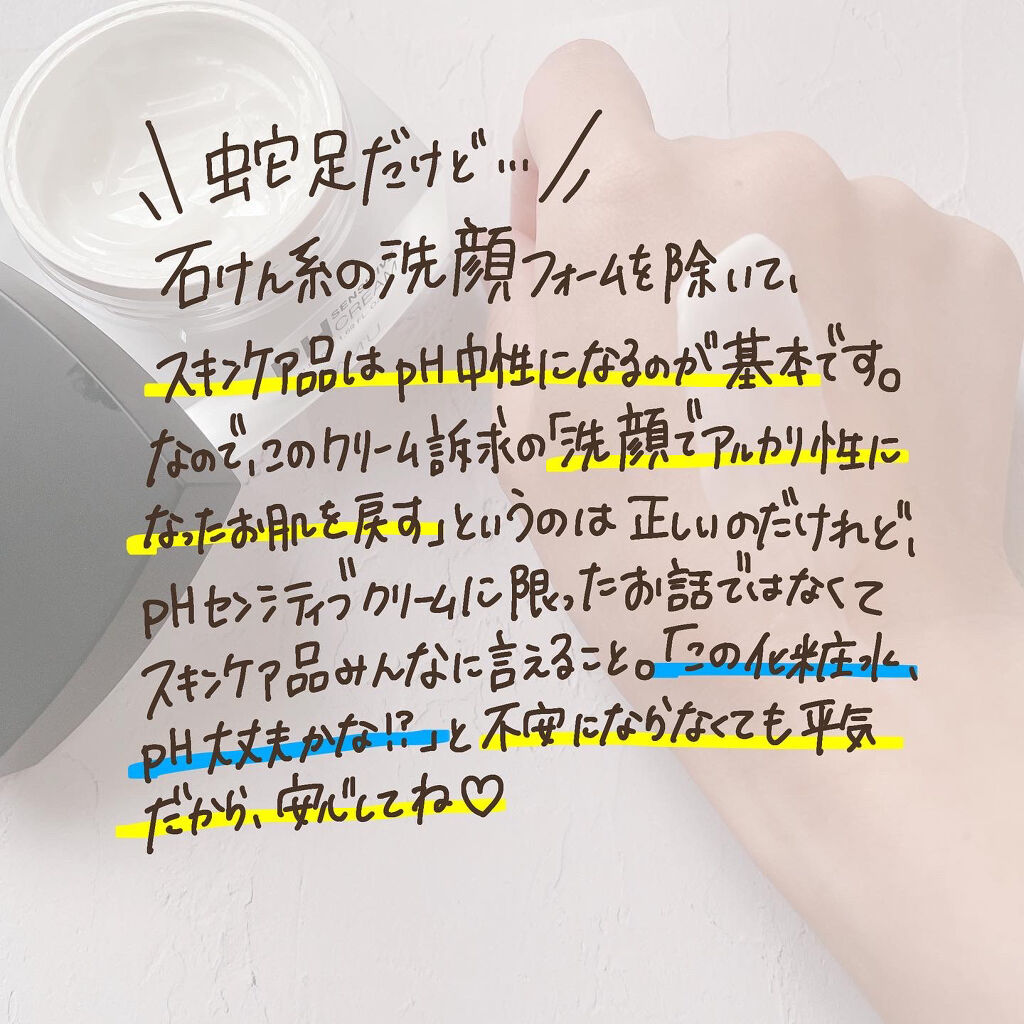 蛇足だけど…
石けん系の洗顔フォームを除いて、
スキンケア品はpH中性になるのが基本です。
なので、このクリーム訴求の「洗顔でアルカリ性に
なったお肌を戻す」というのは正しいのだけれど、
pHセンシティブクリームに限ったお話ではなくて
スキンケア品みんなに言えること。「この化粧水、
pH大丈夫かな!?」と不安にならなくても平気
だから、安心してね♡
CREAM